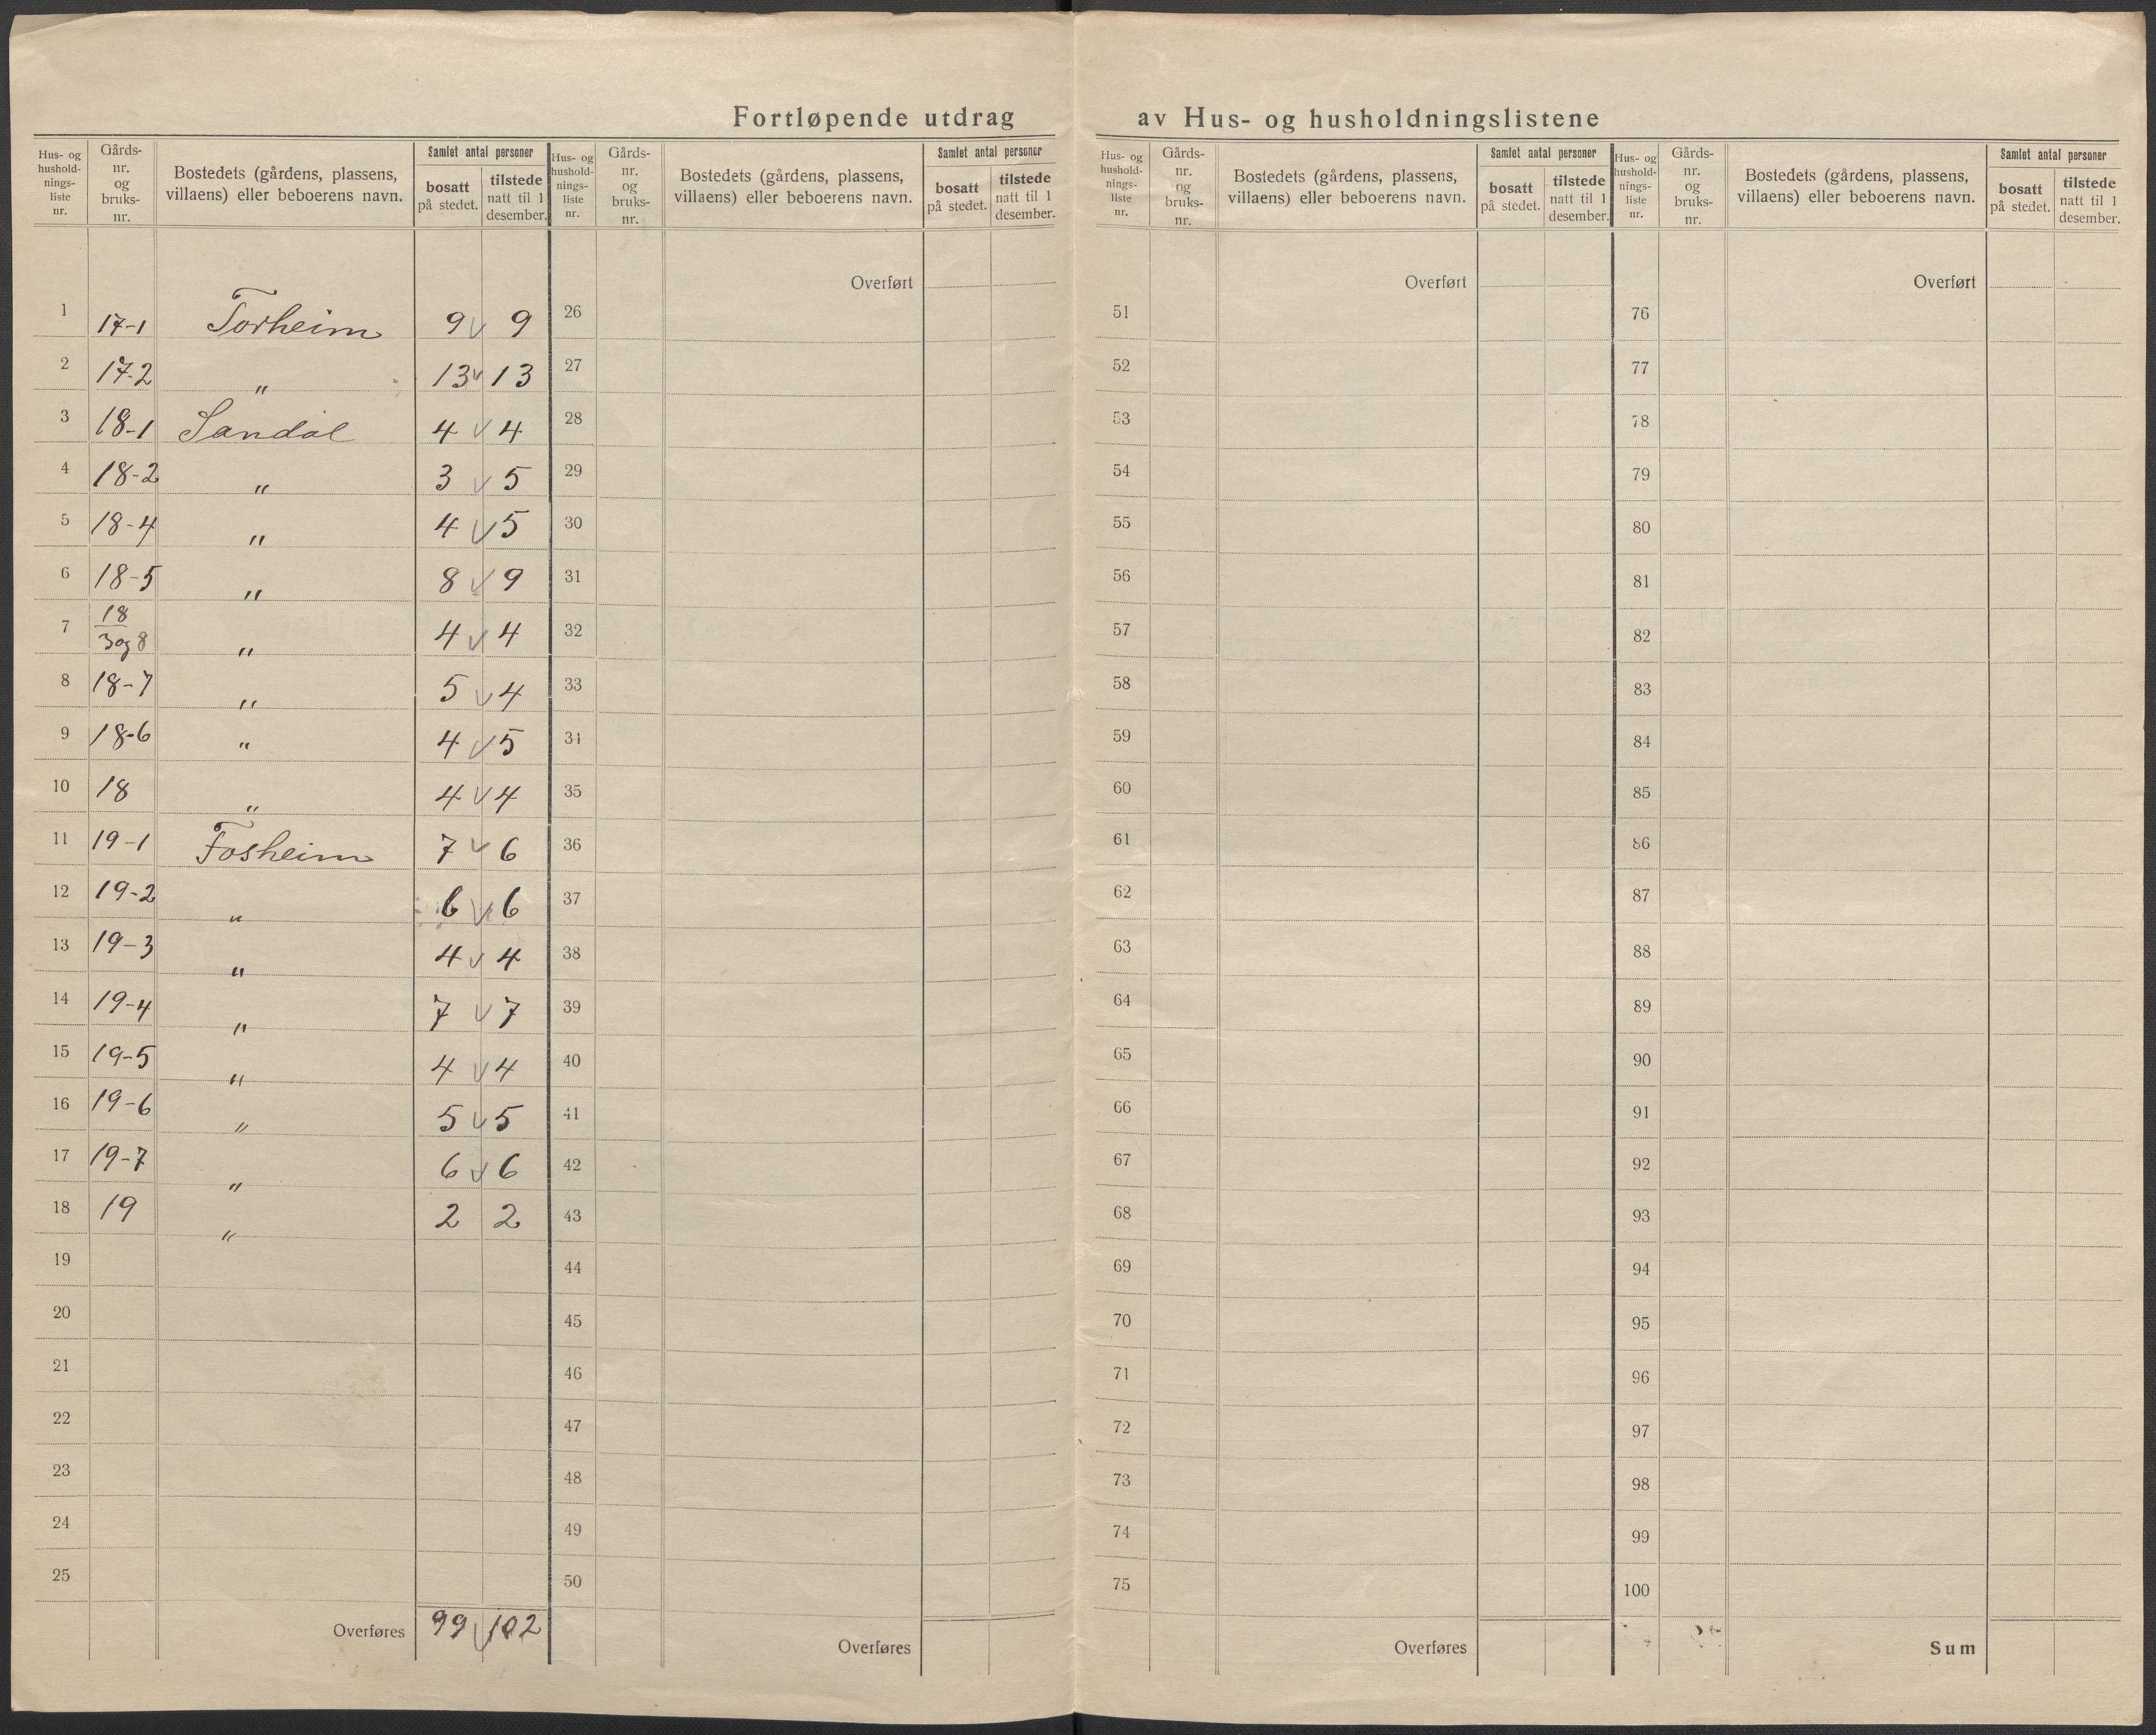 Fortløpende utdrag av Hus- og husholdningslistene
Hus- og hushold- nings- liste nr.
Gårds- nr. og bruks- nr.
Bostedets (gårdens, plassens, villaens) eller beboerens navn.
Samlet antal personer
bosatt på stedet.
tilstede natt til 1 desember.
Hus- og hushold- nings- liste nr.
Gårds- nr. og bruks- nr.
Bostedets (gårdens, plassens, villaens) eller beboerens navn.
Samlet antal personer
bosatt på stedet.
tilstede natt til 1 desember.
Hus- og hushold- nings- liste nr.
Gårds- nr. og bruks- nr.
Bostedets (gårdens, plassens, villaens) eller beboerens navn.
Samlet antal personer
bosatt på stedet.
tilstede natt til 1 desember.
Hus- og hushold- nings- liste nr.
Gårds- nr. og bruks- nr.
Bostedets (gårdens, plassens, villaens) eller beboerens navn.
Samlet antal personer
bosatt på stedet.
tilstede natt til 1 desember.
Overført Overført Overført
1 17-1 Torheim 9 v 9 26 51 76
2 17-2 " 13 v 13 27 52 77
3 18-1 Sandal 4 v 4 28 53 78
4 18-2 " 3 v 5 29 54 79
5 18-4 " 4 v 5 30 55 80
6 18-5 " 8 v 9 31 56 81
7 18/3 og 8 " 4 v 4 32 57 82
8 18-7 " 5 v 4 33 58 83
9 18-6 " 4 v 5 34 59 84
10 18 " 4 v 4 35 60 85
11 19-1 Fosheim 7 v 6 36 61 86
12 19-2 " 6 v 6 37 62 87
13 19-3 " 4 v 4 38 63 88
14 19-4 " 7 v 7 39 64 89
15 19-5 " 4 v 4 40 65 90
16 19-6 " 5 v 5 41 66 91
17 19-7 " 6 v 6 42 67 92
18 19 " 2 2 43 68 93
19 44 69 94
20 45 70 95
21 46 71 96
22 47 72 97
23 48 73 98
24 49 74 99
25 50 75 100
Overføres 99 v 102 Overføres Overføres Sum